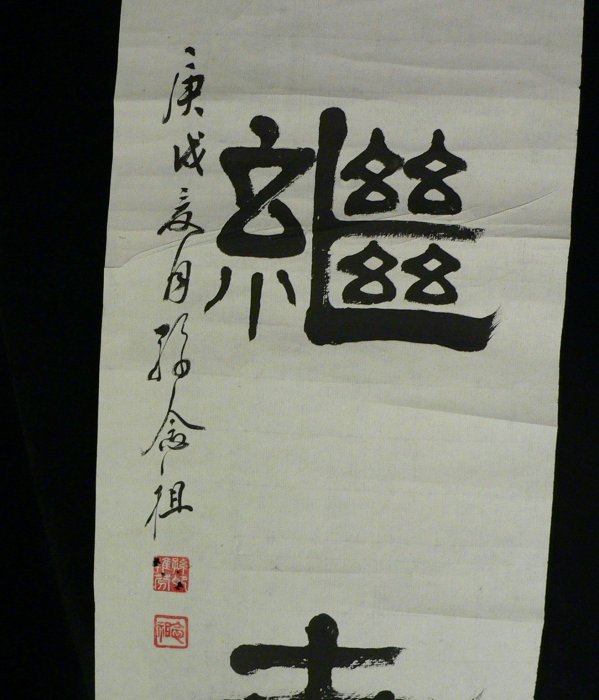 繼
庚戌夏月孫念祖
念祖